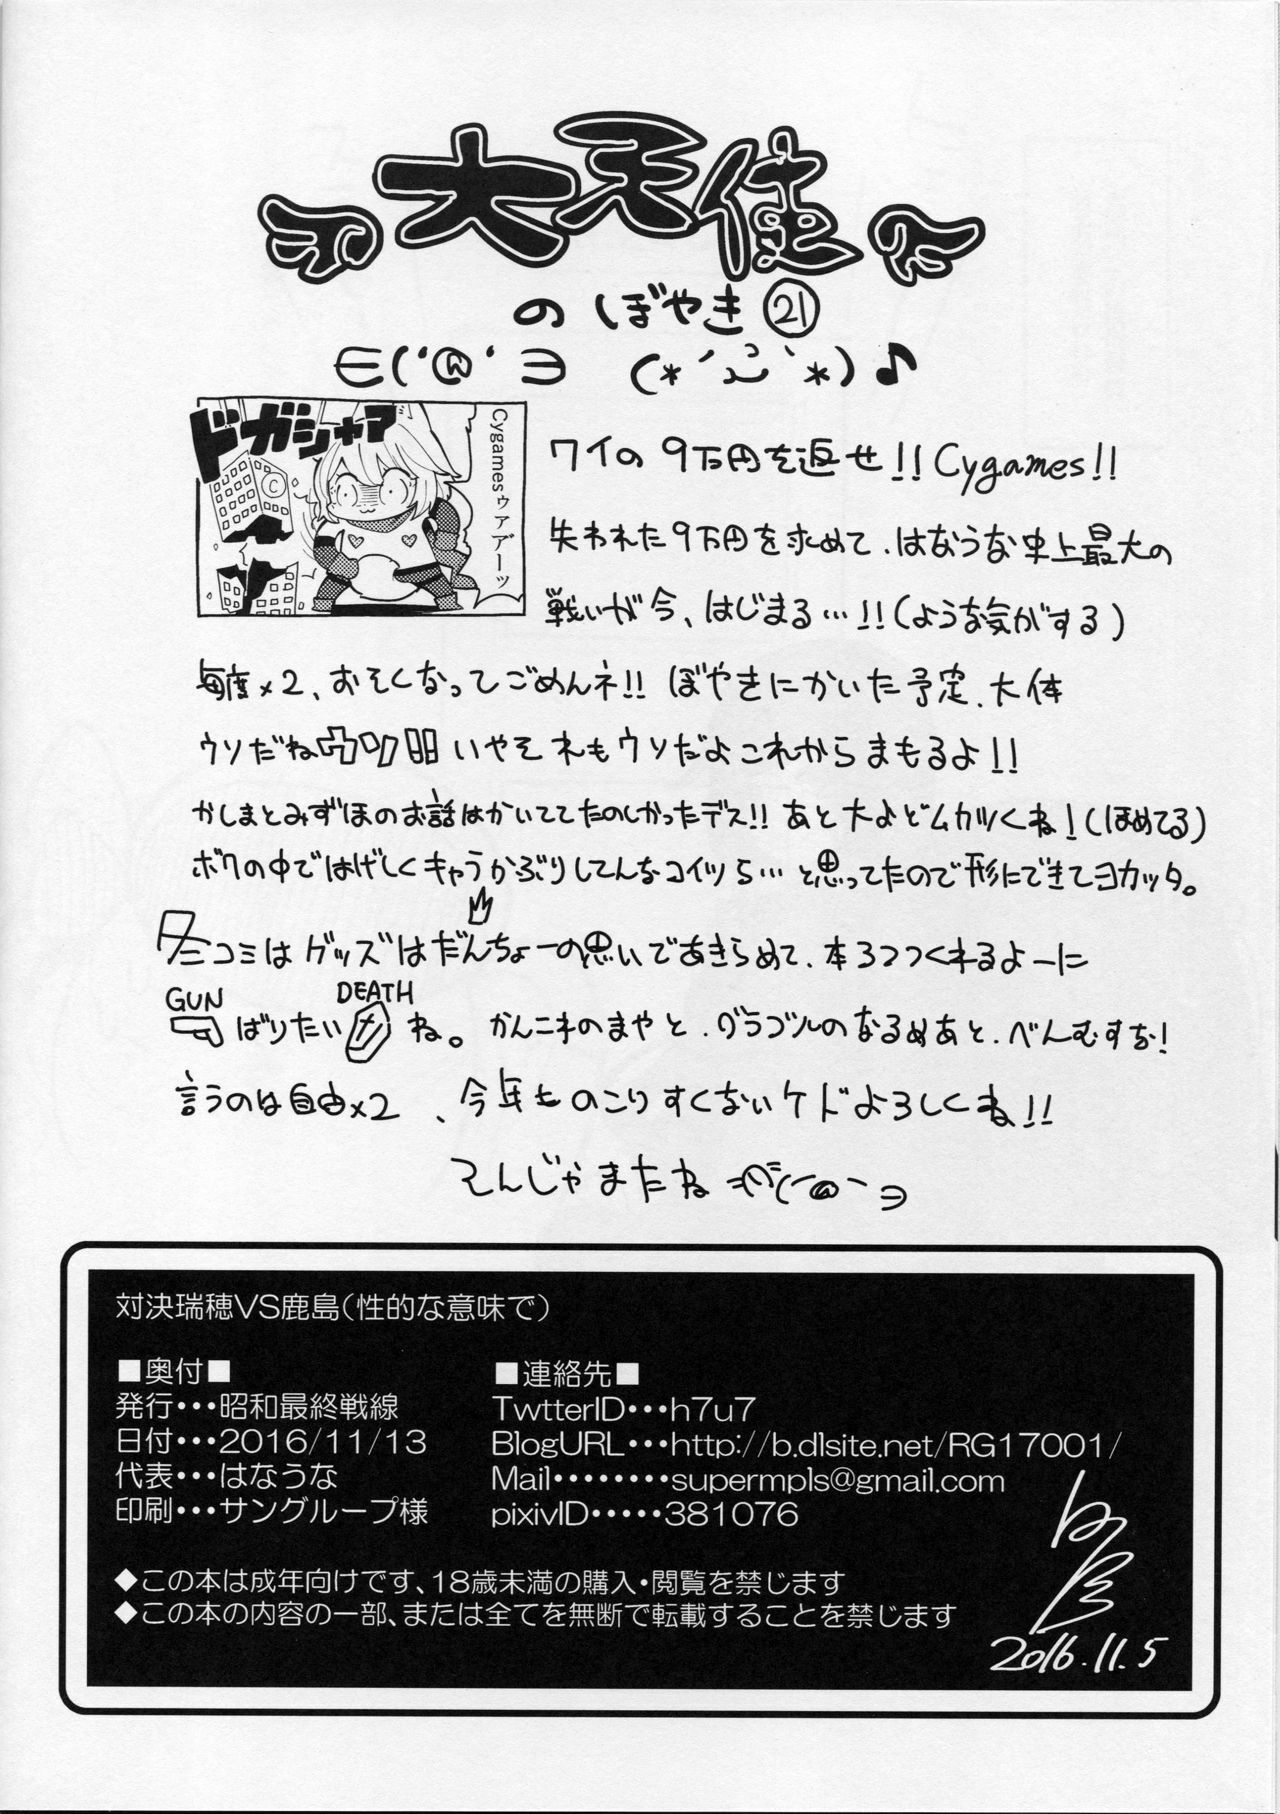 大天使
のぼやき㉑
∈('@'∋ (*´ `*)♪
ドガシャマ
Cygamesゥアアーッ
ワイの9万円を返せ!!Cygames!!
失われた9万円を求めて、はなうな史上最大の
戦いが今、はじまる…!!(ような気がする)
毎度×2、おそくなってごめんネ!!ぼやきにかいた予定、大体
ウソだねウソ!!いやそれもウソだよこれからまもるよ!!
かしまとみずほのお話はかいててたのしかったデス!!あと大よどムカツくね!(ほめてる)
ボクの中ではげしくキャラかぶりしてんなコイツら…と思ってたので形にできてヨカッタ。
冬コミはグッズはだんちょーの思いであきらめて、本3つつくれるよーに
GUN
DEATH
ばりたい ね。かんニネのまやと、グラブルのなるめあと、べんむすな!
言うのは自由×2、今年ものこりすくないケドよろしくね!!
そんじゃまたね
対決瑞穂VS鹿島(性的な意味で)
■奥付■
発行・・・昭和最終戦線
日付・・・2016/11/13
代表・・・はなうな
印刷・・・サングループ様
■連絡先■
TwtterID・・・h7u7
BlogURL・・・http://b.dlsite.net/RG17001/
Mail・・・・・・・・supermpls@gmail.com
pixivID・・・・・381076
◆この本は成年向けです、18歳未満の購入・閲覧を禁じます
◆この本の内容の一部、または全てを無断で転載することを禁じます
2016.11.5